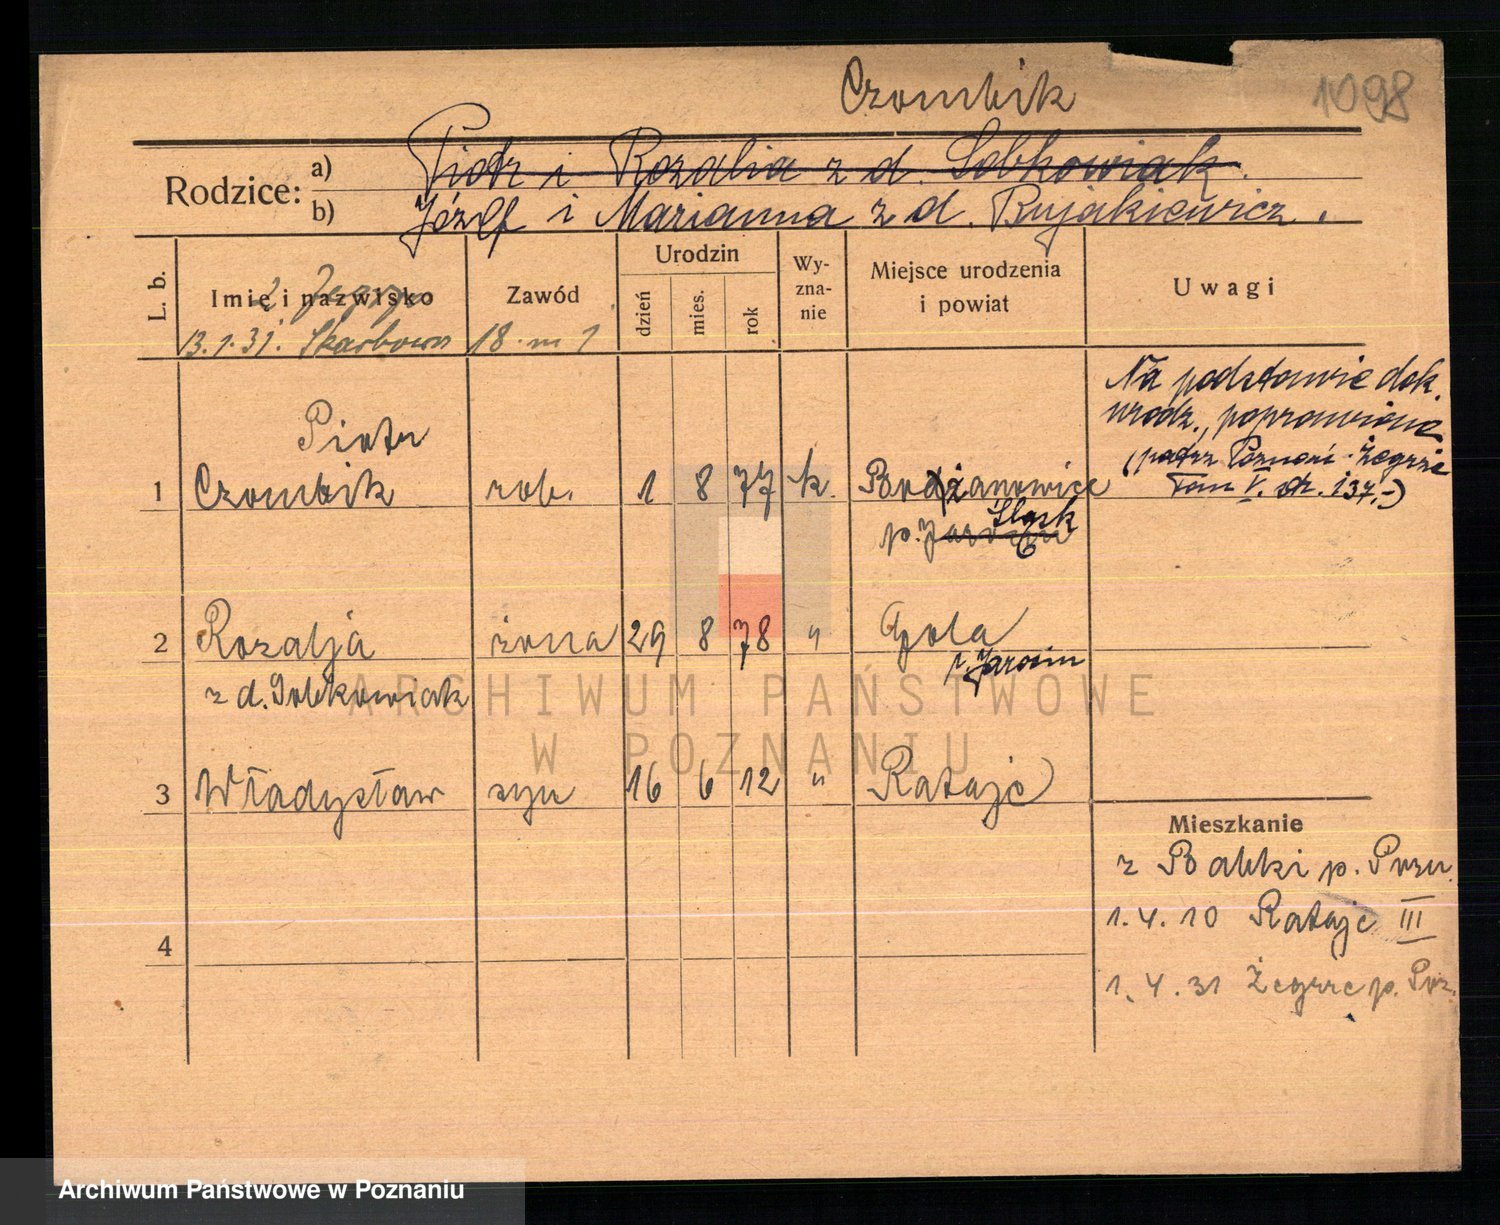 Czombik
1098
Rodzice:
a) Piotr i Rozalia z d. Sobkowiak.
b) Józef i Marianna z d. Bujakiewicz.
L. b.
Imię i nazwisko
Zawód
Urodzin
dzień
mies.
rok
Wy-
zna-
nie
Miejsce urodzenia
i powiat
Uwagi
13.1.31. Skarbowa 18 m 1
Na podstawie dok.
urodz. poprawiono
(patrz Poznań-Żegrze
Tom V. str. 137.-)
Piotr
1 Czombik rob. 1 8 77 k.
Śląsk
2 Rozalja żona 29 8 78 " Gola
p. Jarocin
z d. Sobkowiak
3 Władysław syn 16 6 12 " Rataje
4
Mieszkanie
z Babki p. Pozn.
1.4.10 Rataje III
1.4.31 Żegrze p. Poz.
ARCHIWUM PAŃSTWOWE
W POZNANIU
Archiwum Państwowe w Poznaniu